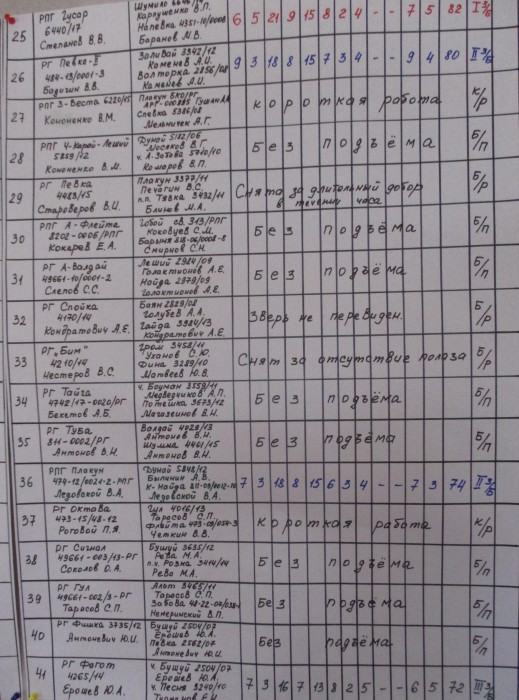 25 РПГ Гусар
6440/17
Степанов В.В.
Карлушенко В.П.
Напевка 4351-10/0008
Баранов М.В.
6 5 21 9 15 8 2 4 - - 7 5 82 I 3/б
26 РГ Певко-II
484-13/0001-3
Бодягин В.В.
Заливай 3342/12
Каменев А.И.
Волторка 2856/08
Каменев А.И.
9 3 18 8 15 7 3 4 - - 9 4 80 II 3/б
27 РПГ З-Веста 6220/15
Кононенко В.М.
Плакун ВКО/РГ
Спевка 5386/08
Мельничек А.Г.
короткая работа к/р
28 РПГ Ч-Карай-Леший
5259/12
Кононенко В.М.
Дунай 5182/06
Мосяков В.Г.
ч. А-Забава 5710/10
Комаров В.П.
Без подъёма Б/п
29 РГ Певка
4483/15
Староверов В.И.
Плакун 3377/11
Печёгин В.С.
п.п. Тявка 3432/11
Блинов М.А.
Снята за длительный добор
в течении часа Б/р
30 РПГ А-Флейта
8202-0006/РПГ
Кокарев Е.А.
Гобой св. 313/РПГ
Коковцев С.М.
Барыня 818-06/0008-8
Смирнов С.Н.
Без подъёма Б/п
31 РГ А-Валдай
49661-10/0001-2
Слепов С.С.
Леший 2924/09
Галактионов А.Е.
Найда 2979/09
Галактионов А.Е.
Без подъёма Б/п
32 РГ Спойка
4170/14
Кондратович А.Е.
Баян 2829/08
Голубев А.А.
Гайда 3324/13
Кондратович А.Е.
Зверь не перевиден. Б/р
33 РГ „Бим"
4210/14
Нестеров В.С.
Гром 3458/11
Уханов С.Ю.
Фина 3289/10
Матвеев Ю.В.
Снят за отсутствие полаза Б/р
34 РГ Тайга
4742/17-0020/РГ
Бекетов А.Б.
ч. Боуман 3559/11
Медведчиков А.П.
Потешка 3673/12
Магазеинов В.Н.
Без подъёма Б/п
35 РГ Туба
811-0002/РГ
Антонов В.Н.
Валдай 4028/13
Антонов В.Н.
Шумла 4401/15
Антонов В.Н.
Без подъёма Б/п
36 РПГ Плакун
474-12/0021-2-РПГ
Ледовской В.А.
Дунай 5848/12
Былинин А.В.
К-Найда 811-09/0012-10
Ледовской В.А.
7 3 18 8 15 6 3 4 - - 7 3 74 II 3/б
37 РГ Октава
473-15/48-12
Роговой П.Я.
Гул 4016/13
Тарасов С.П.
Флейта 473-09/034-3
Четкин В.В.
короткая работа к/р
38 РГ Сигнал
49661-003/13-РГ
Соколов О.А.
Бушуй 3635/12
Рева М.А.
п.ч. Розна 3414/14
Рева М.А.
Без подъёма Б/п
39 РГ Гул
49661-002/3-РГ
Тарасов С.П.
Альт 3465/11
Тарасов С.П.
Немеринский В.П.
Без подъёма Б/п
40 РГ Фишка 3735/12
Антоневич Ю.И.
Бушуй 2504/07
Ерошев Ю.А.
Певка 2562/07
Антоневич Ю.И.
Без подъёма Б/п
41 РГ Фагот
4265/14
Ерошев Ю.А.
ч. Бушуй 2504/07
Ерошев Ю.А.
ч. Песня 3240/10
7 3 16 7 13 8 2 5 - - 6 5 72 III 3/б